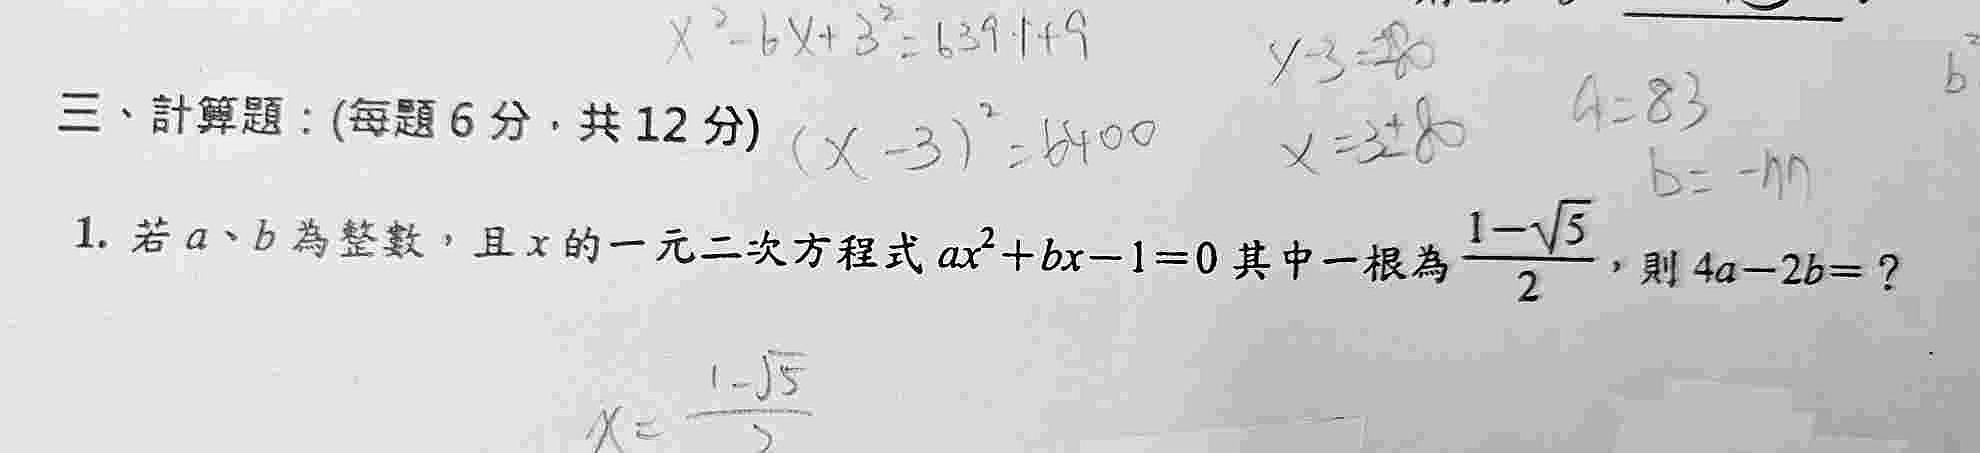 x²-6x+3²=6391+9
x-3=±80
(x-3)²=6400
x=3±80
a=83
b=-77
b²
三、計算題：(每題 6 分，共 12 分)
1. 若 a、b 為整數，且 x 的一元二次方程式 ax²+bx-1=0 其中一根為 (1-√5)/2，則 4a-2b=？
x= (1-√5)/2